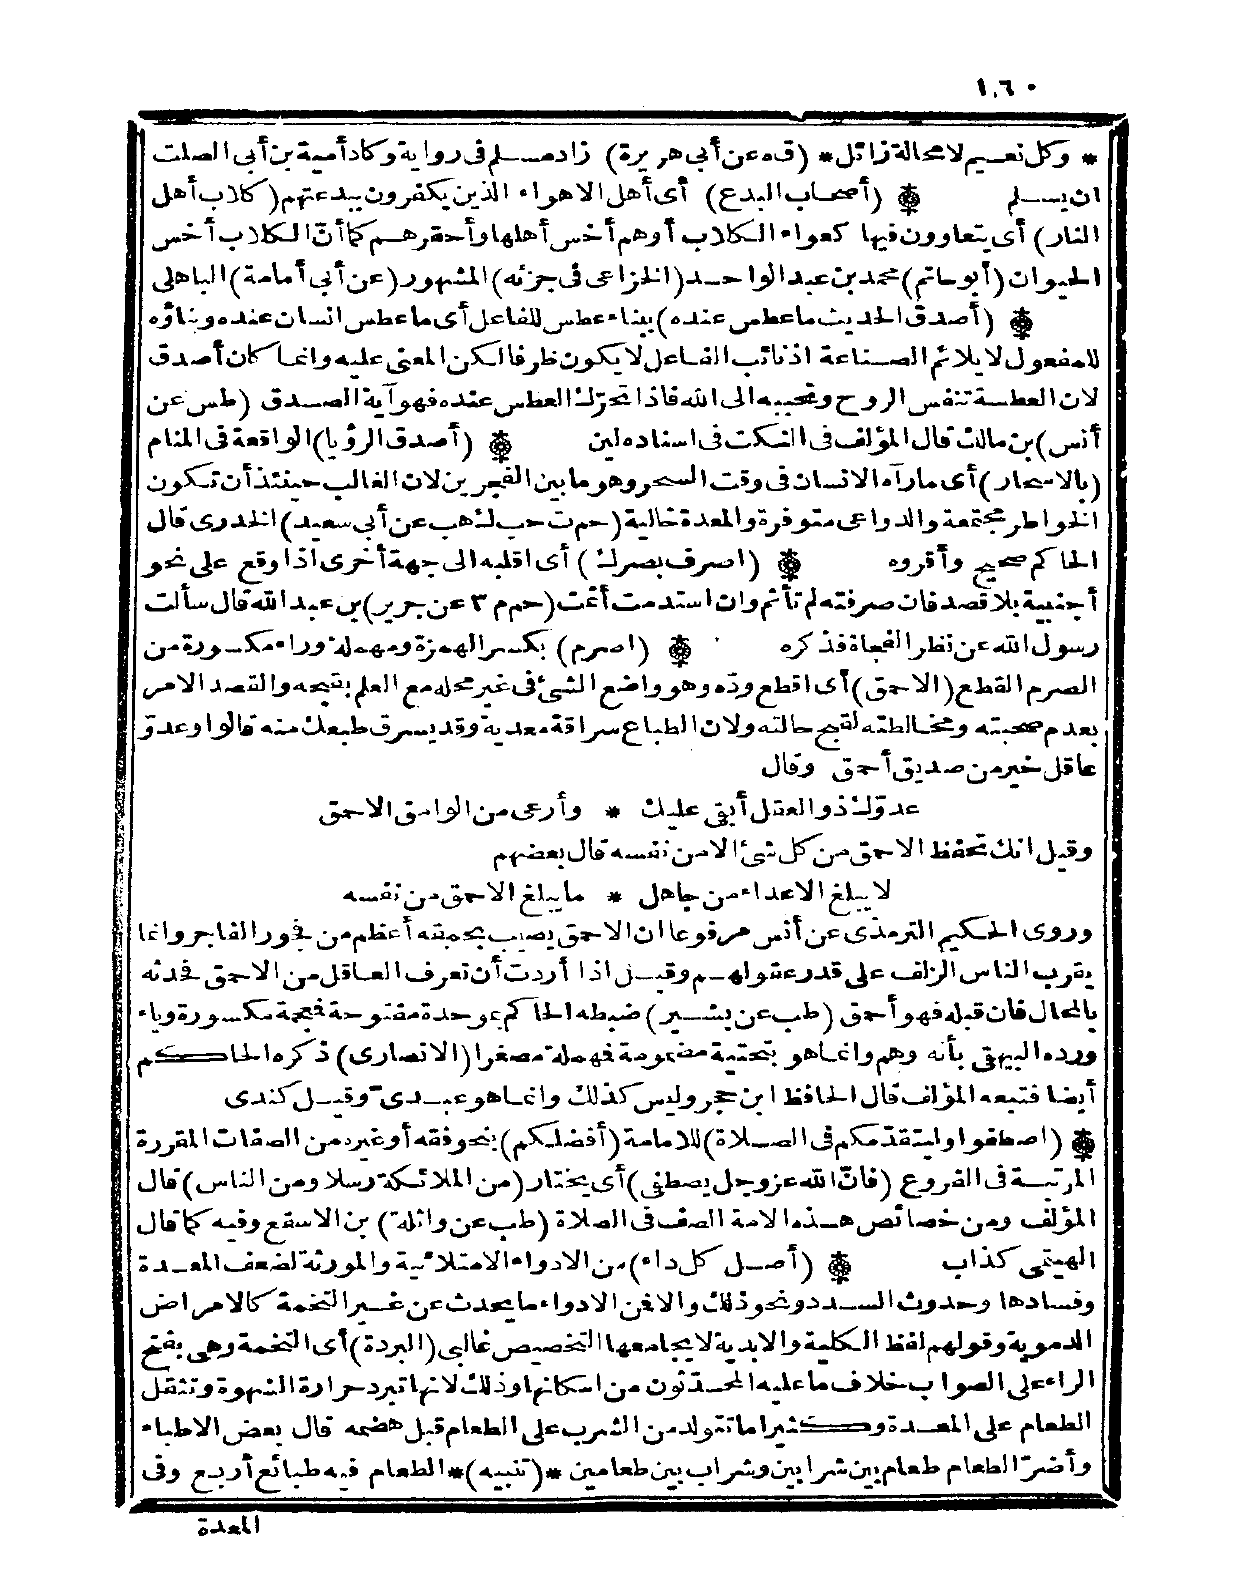 ١٦٠
* وكل نعيم لا محالة زائل * (ق ه عن أبي هريرة) زاد مسلم في رواية وكاد أمية بن أبي الصلت
ان يسلم ۞ (أصحاب البدع) أى أهل الاهواء الذين يكفرون ببدعتهم (كلاب أهل
النار) أى يتعاوون فيها كعواء الكلاب أوهم أخس أهلها وأحقرهم كما أنّ الكلاب أخس
الحيوان (أبو حاتم) محمد بن عبد الواحد (الخزاعى فى جزئه) المشهور (عن أبى أمامة) الباهلى
۞ (أصدق الحديث ما عطس عنده) ببناء عطس للفاعل أى ما عطس انسان عنده وبناؤه
للمفعول لا يلائم الصناعة اذ نائب الفاعل لا يكون ظرفا لكن المعنى عليه وانما كان أصدق
لان العطسة تنفس الروح وتحببه الى الله فاذا تحرّك العطس عنده فهو آية الصدق (طس عن
أنس) بن مالك قال المؤلف فى النكت فى اسناده لين ۞ (أصدق الرؤيا) الواقعة فى المنام
(بالاسحار) أى ما رآه الانسان فى وقت السحر وهو ما بين الفجرين لان الغالب حينئذ أن تكون
الخواطر مجتمعة والدواعى متوفرة والمعدة خالية (حم ت حب ك هب عن أبى سعيد) الخدرى قال
الحاكم صحيح وأقروه ۞ (اصرف بصرك) أى اقلبه الى جهة أخرى اذا وقع على نحو
أجنبية بلا قصد فان صرفته لم تأثم وان استدمت أثمت (حم م ٣ عن جرير) بن عبد الله قال سألت
رسول الله عن نظر الفجاة فذكره ۞ (اصرم) بكسر الهمزة ومهملة وراء مكسورة من
الصرم القطع (الاحمق) أى اقطع ودّه وهو واضع الشئ فى غير محله مع العلم بقبحه والقصد الامر
بعدم صحبته ومخالطته لقبح حالته ولان الطباع سراقة معدية وقد يسرق طبعك منه قالوا وعدوّ
عاقل خير من صديق أحمق وقال
عدوّك ذو العقل أبقى عليك * وأرعى من الوامق الاحمق
وقيل انك تحفظ الاحمق من كل شئ الا من نفسه قال بعضهم
لا يبلغ الاعداء من جاهل * ما يبلغ الاحمق من نفسه
وروى الحكيم الترمذى عن أنس مرفوعا ان الاحمق يصيب بحمقه أعظم من فجور الفاجر وانما
يقرب الناس الزلف على قدر عقولهم وقيل اذا أردت أن تعرف العاقل من الاحمق فحدثه
بالمحال فان قبله فهو أحمق (طب عن بشير) ضبطه الحاكم بموحدة مفتوحة فمعجمة مكسورة وياء
ورده البيهقى بأنه وهم وانما هو بتحتية مضمومة فمهملة مصغرا (الانصارى) ذكره الحاكم
أيضا فتبعه المؤلف قال الحافظ ابن حجر وليس كذلك وانما هو عبدى وقيل كندى
۞ (اصطفوا وليتقدّمكم فى الصلاة) للامامة (أفضلكم) بنحو فقه أو غيره من الصفات المقررة
المرتبة فى الفروع (فانّ الله عز وجل يصطفى) أى يختار (من الملائكة رسلا ومن الناس) قال
المؤلف ومن خصائص هذه الامة الصف فى الصلاة (طب عن واثلة) بن الاسقع وفيه كما قال
الهيثمى كذاب ۞ (أصل كل داء) من الادواء الامتلائية والمورثة لضعف المعدة
وفسادها وحدوث السدد ونحو ذلك والا فمن الادواء ما يحدث عن غير التخمة كالامراض
الدموية وقولهم لفظ الكلية والابدية لا يجامعها التخصيص غالبى (البردة) أى التخمة وهى بفتح
الراء على الصواب خلاف ما عليه المحدّثون من اسكانها وذلك لانها تبرد حرارة الشهوة وتثقل
الطعام على المعدة وكثيرا ما تتولد من الشرب على الطعام قبل هضمه قال بعض الاطباء
وأضرّ الطعام طعام بين شرابين وشراب بين طعامين * (تنبيه) * الطعام فيه طبائع أربع وفى
المعدة